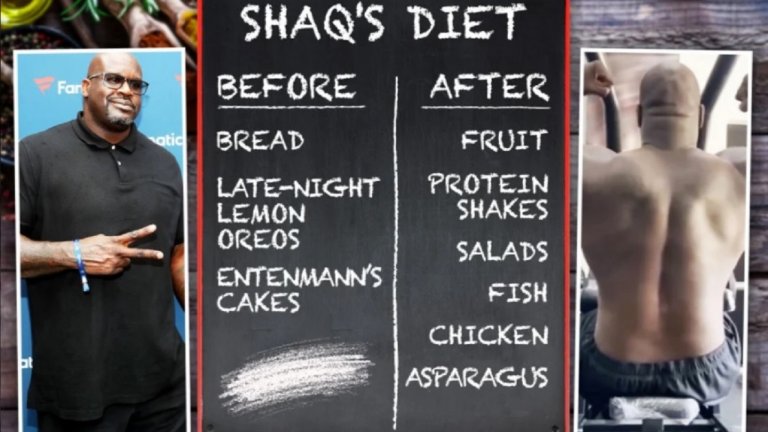 SHAQ'S DIET
BEFORE
BREAD
LATE-NIGHT
LEMON
OREOS
ENTENMANN'S
CAKES
AFTER
FRUIT
PROTEIN
SHAKES
SALADS
FISH
CHICKEN
ASPARAGUS
Fan
natic